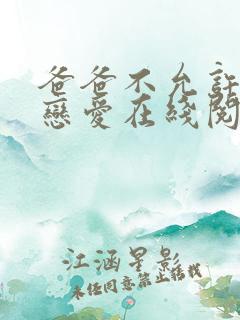 爸爸不允許
戀愛在綫閱
江涵星影
未经同意禁止转载